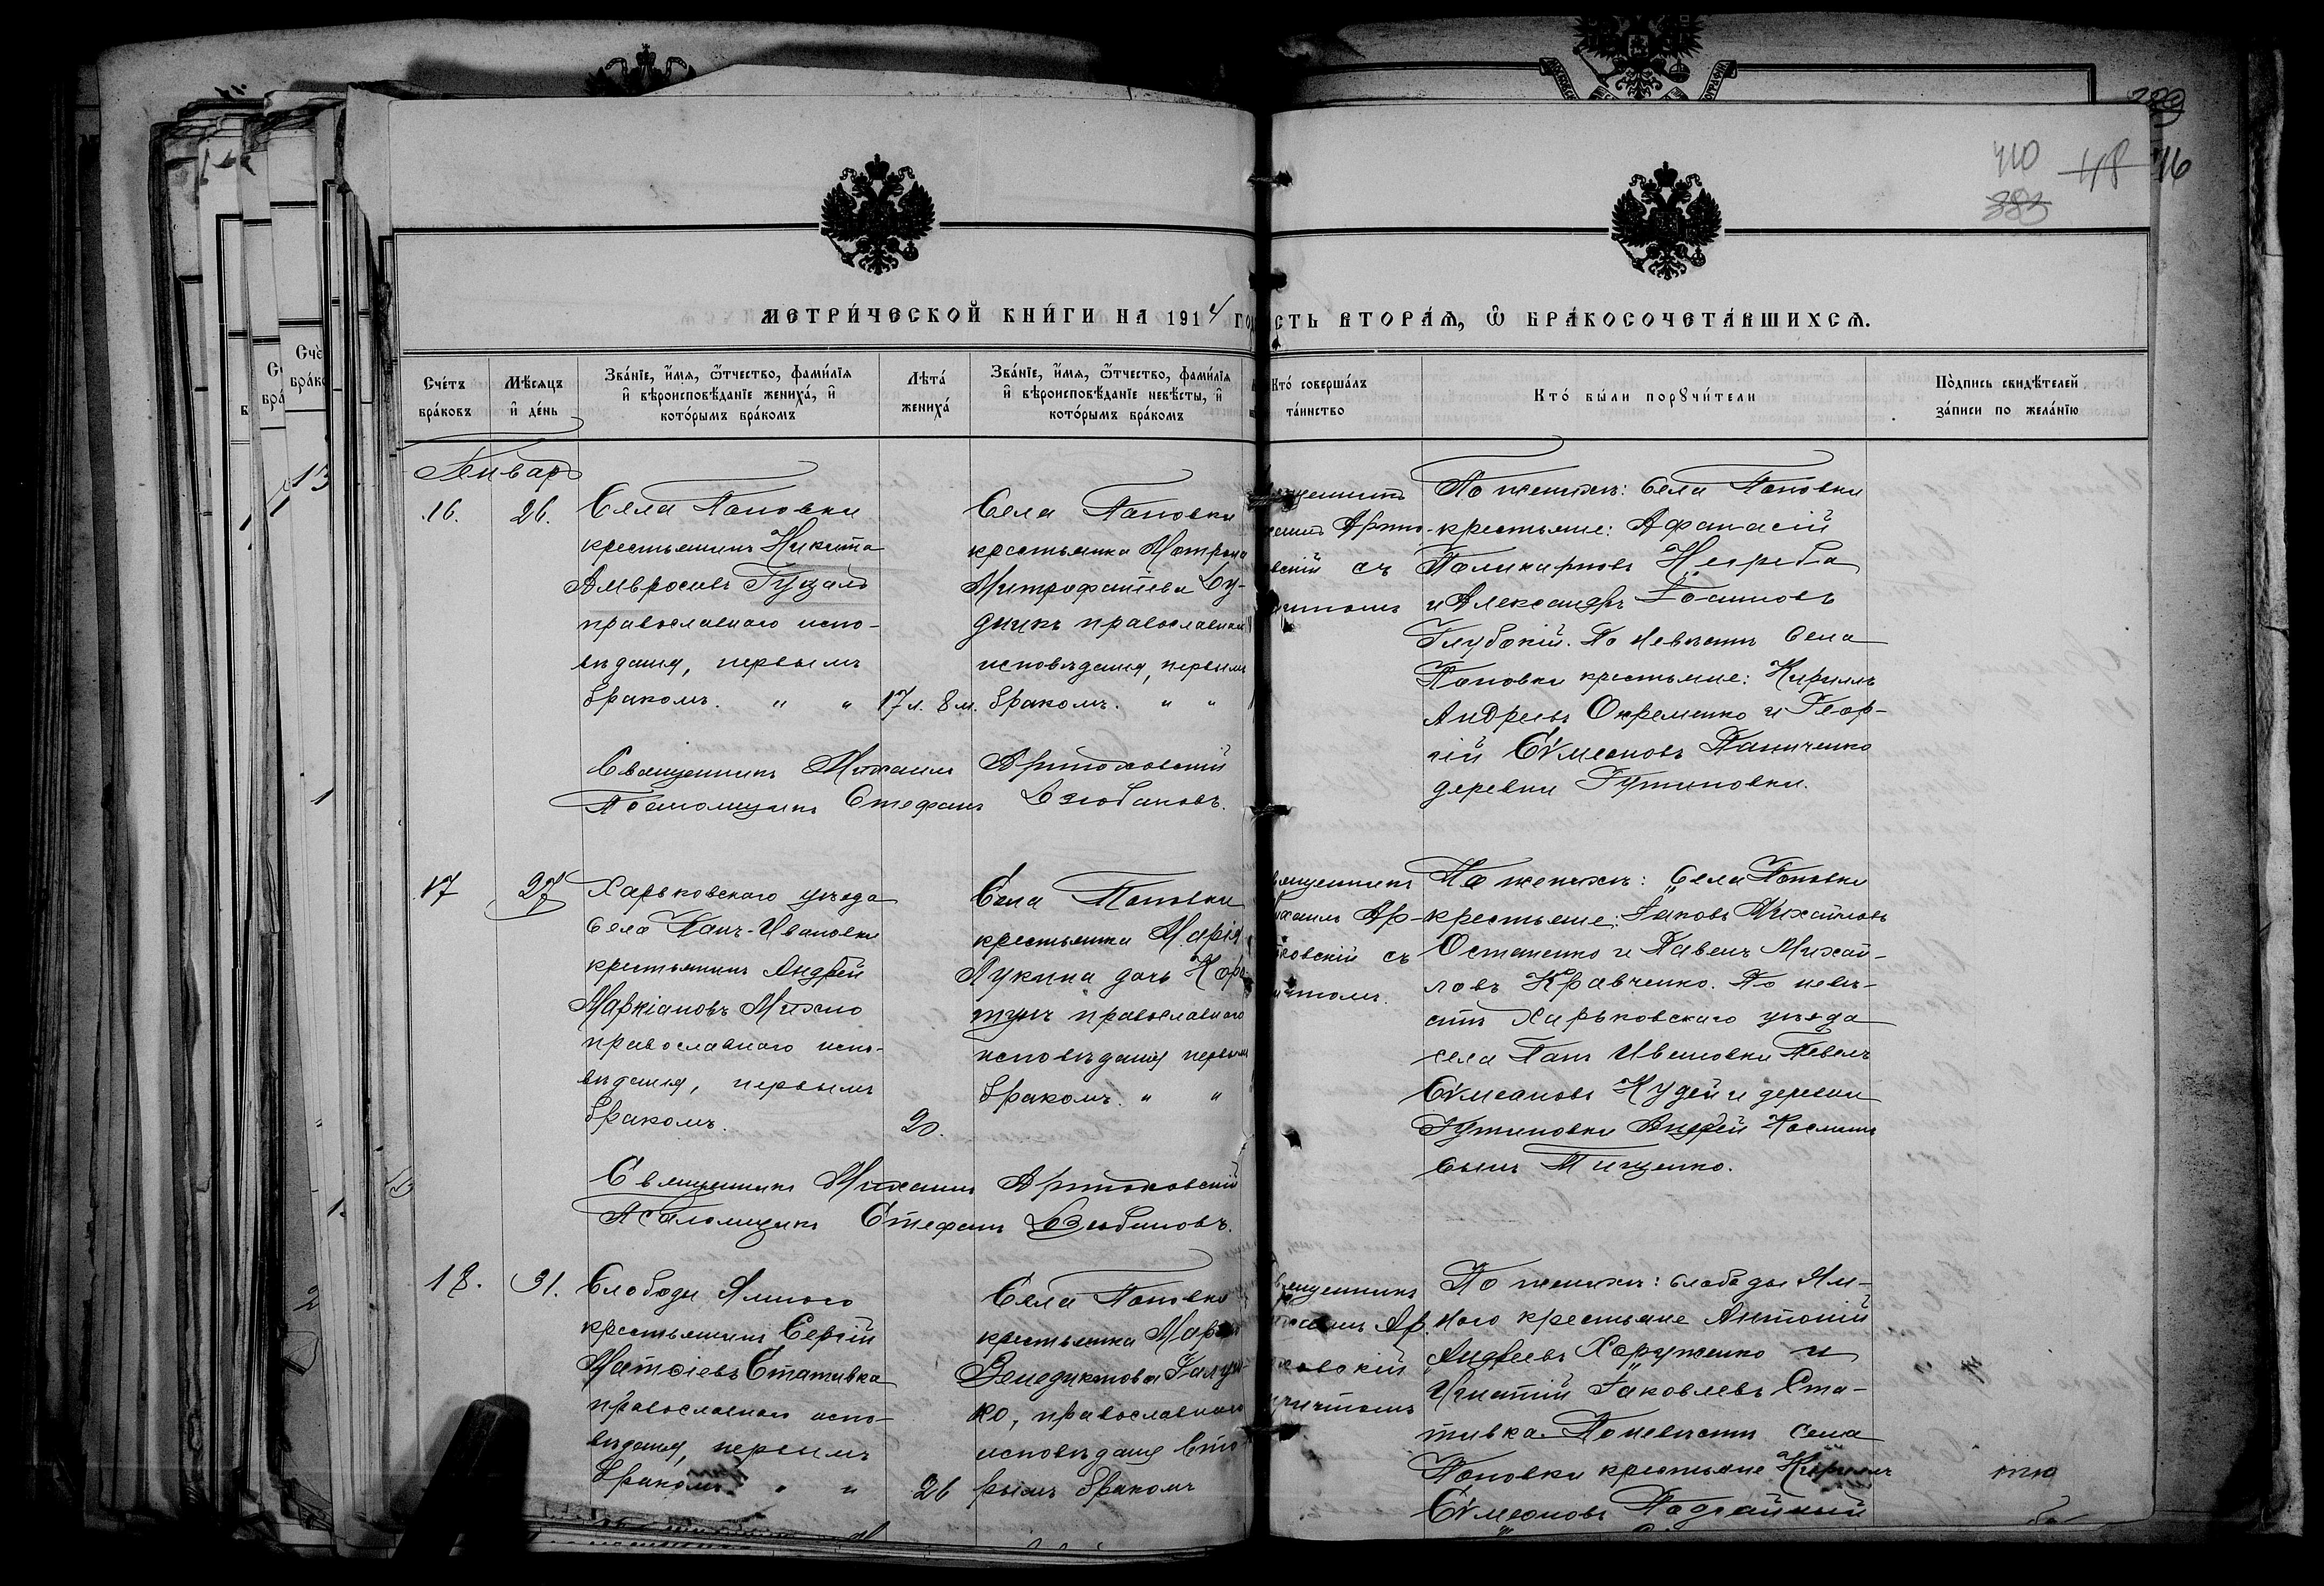 410 48 16
383
МЕТРИ́ЧЕСКОЙ КНИ́ГИ НА 1914 ГО
СТЬ ВТОРА́Ѧ, Ѽ БРА́КОСОЧЕТА́ВШИХСѦ.
Сче́тъ бра́ковъ
Мѣ́сяцъ и҆ де́нь
Зва́нїе, и҆́мя, ѻ҆́тчество, фами́лїя и҆ вѣроисповѣ́данїе жениха́, и҆ кото́рымъ бра́комъ
Лѣта́ жениха́
Зва́нїе, и҆́мя, ѻ҆́тчество, фами́лїя и҆ вѣроисповѣ́данїе невѣ́сты, и҆ кото́рымъ бра́комъ
Кто́ соверша́лъ та́инство
Кто́ бы́ли порꙋчи́тели
По́дпись свидѣ́телей за́писи по жела́нїю
Январь
16. 26.
Села Поповки
крестьянинъ Никита
Амвросіевъ Гуцалъ
православнаго испо-
вѣданія, первымъ
бракомъ. " "
17 л. 8 м.
Села Поповки
крестьянка Матрона
Митрофанева Ду-
дникъ православнаго
исповѣданія, первымъ
бракомъ. " "
Священникъ Михаилъ
Псаломщикъ Стефанъ
Арто-
вскій съ
По женихѣ: Села Поповки
крестьяне: Афанасій
Поликарповъ Негреба
и Александръ Іоанновъ
Глубокій. По невѣстѣ Села
Поповки крестьяне: Кириллъ
Андреевъ Охременко и Геор-
гій Сѵмеоновъ Паниченко
деревни Гутниковки.
17 27
Харьковскаго уѣзда
Села Панъ-Ивановки
крестьянинъ Андрей
Маркіановъ Михно
православнаго испо-
вѣданія, первымъ
бракомъ.
20.
Села Поповки
крестьянка Марія
Лукина дочь Коро-
тунъ православнаго
исповѣданія первымъ
бракомъ. " "
Священникъ Михаилъ
Псаломщикъ Стефанъ
Ар-
ковскій съ
По женихѣ: Села Поповки
крестьяне: Іаковъ Михайловъ
Остапенко и Павелъ Михай-
ловъ Кравченко. По невѣ-
стѣ Харьковскаго уѣзда
села Панъ Ивановки Павелъ
Сѵмеоновъ Кудей и деревни
Гутниковки Андрей Косминъ
сынъ Тищенко.
18. 31.
Слободы Ямного
крестьянинъ Сергій
Матѳіевъ Стативка
православнаго испо-
вѣданія, первымъ
бракомъ " "
26
Села Поповки
крестьянка Марія
Венедиктова Галуш-
ко, православнаго
исповѣданія вто-
рымъ бракомъ
Ар.
ковскій
По женихѣ: слободы Ям-
ного крестьяне Антоній
Андреевъ Хоруженко и
Игнатій Іаковлевъ Ста-
тивка. По невѣстѣ села
Поповки крестьяне Кириллъ
Сѵмеоновъ Подгайный